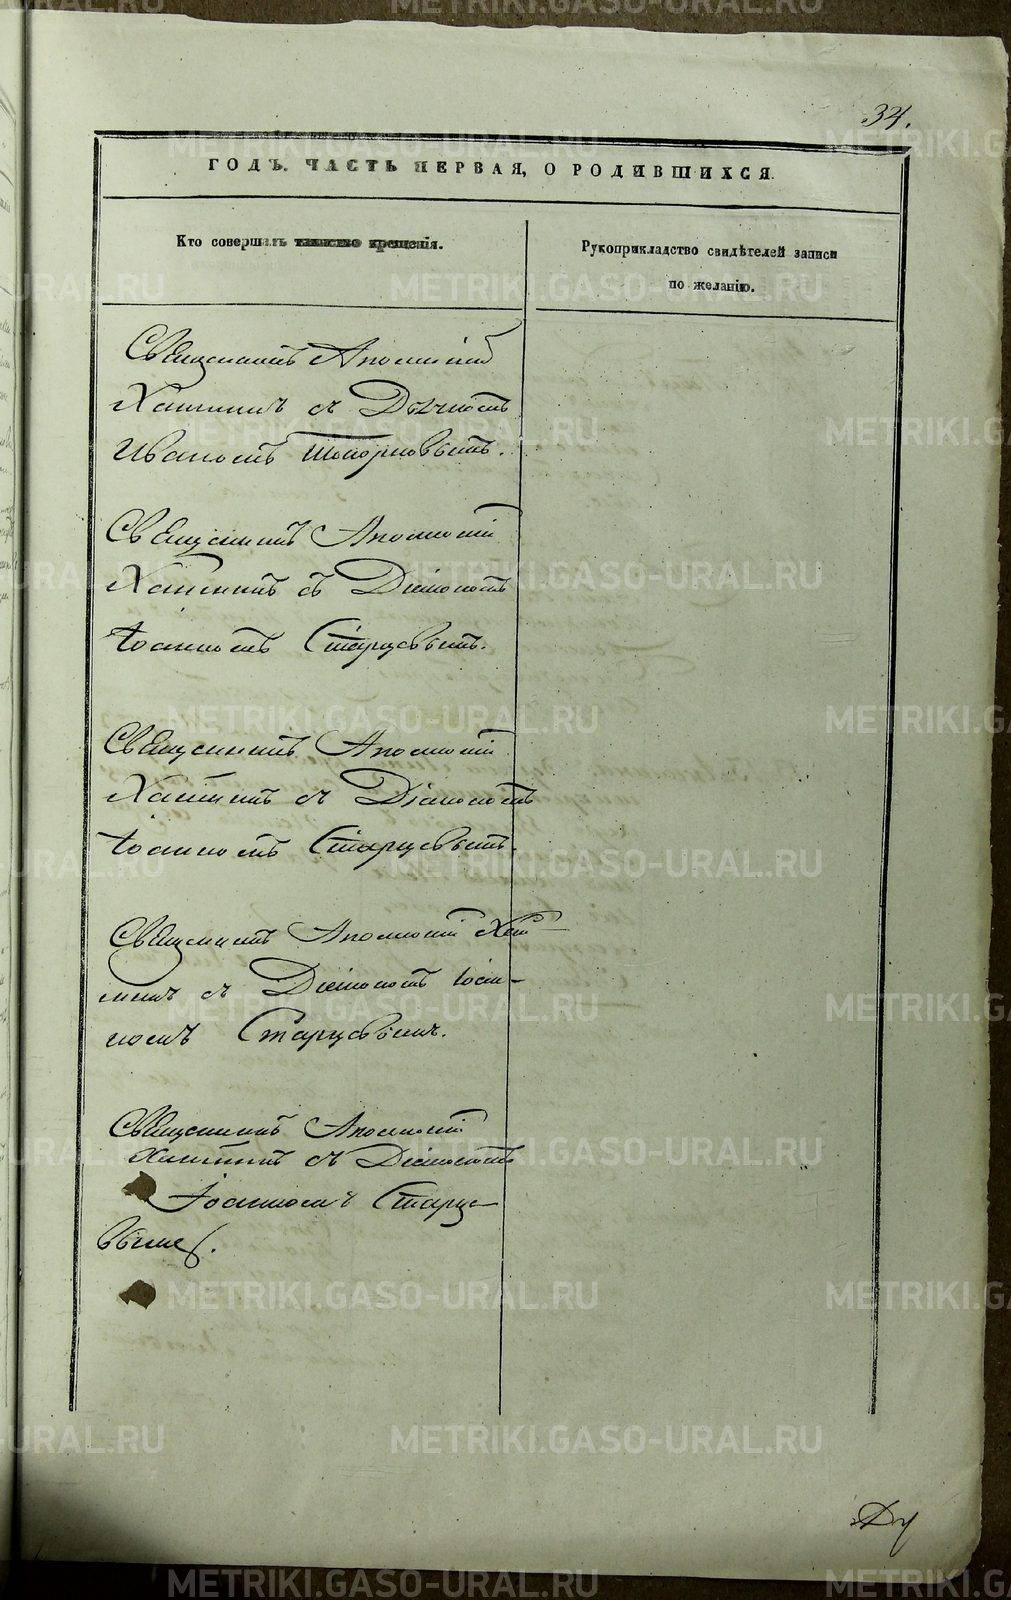 34.
ГОДЪ. ЧАСТЬ ПЕРВАЯ, О РОДИВШИХСЯ.
Кто совершалъ таинство крещенія.
Рукоприкладство свидѣтелей записи
по желанію.
Священникъ Аполлоній
съ
Иваномъ Топорковымъ.
Священникъ Аполлоній
съ Діакономъ
Іоанномъ Старцевымъ.
Священникъ Аполлоній
съ Діакономъ
Іоанномъ Старцевымъ.
Священникъ Аполлоній
съ Діакономъ Іоан-
номъ Старцевымъ.
Священникъ Аполлоній
съ Діакономъ
Іоанномъ Старце-
вымъ.
METRIKI.GASO-URAL.RU